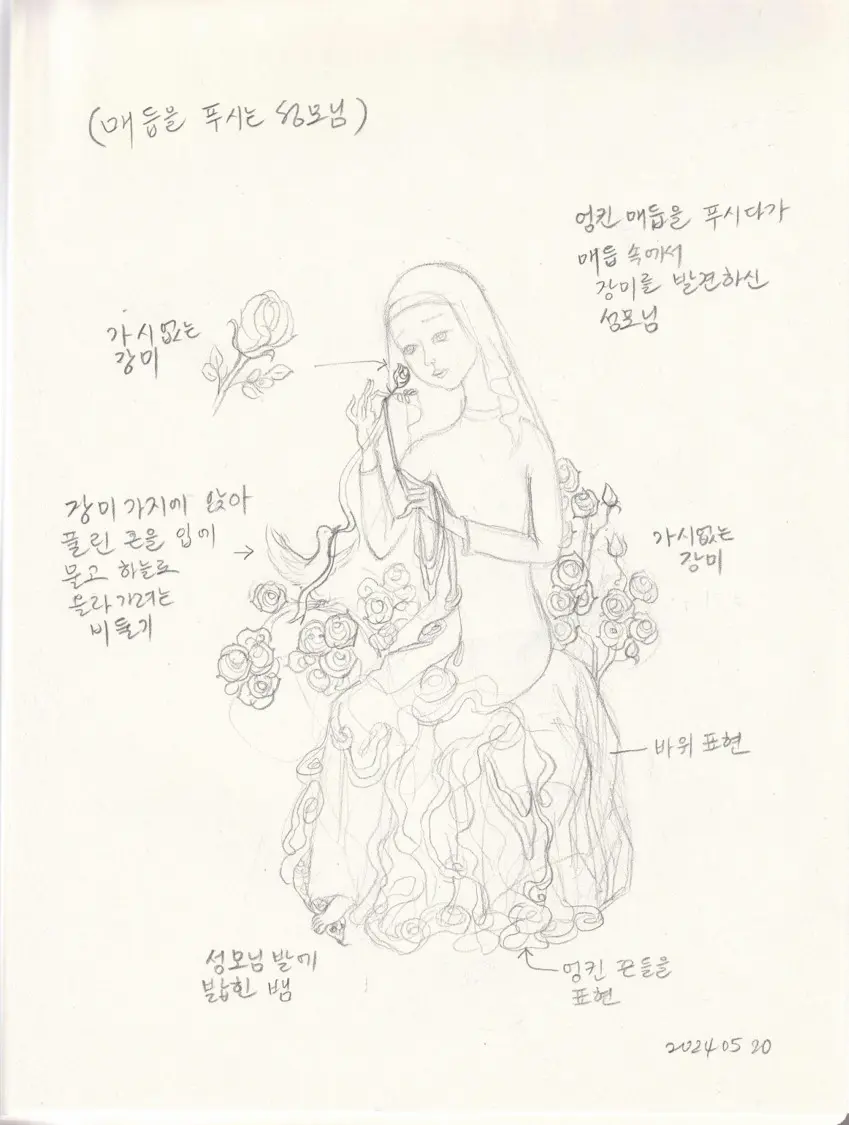 (매듭을 푸시는 성모님)
엉킨 매듭을 푸시다가
매듭 속에서
장미를 발견하신
성모님
가시없는
장미
장미 가지에 앉아
풀린 끈을 입에
물고 하늘로
올라가려는
비둘기
가시없는
장미
바위 표현
성모님 발에
밟힌 뱀
엉킨 끈들을
표현
2024 05 20